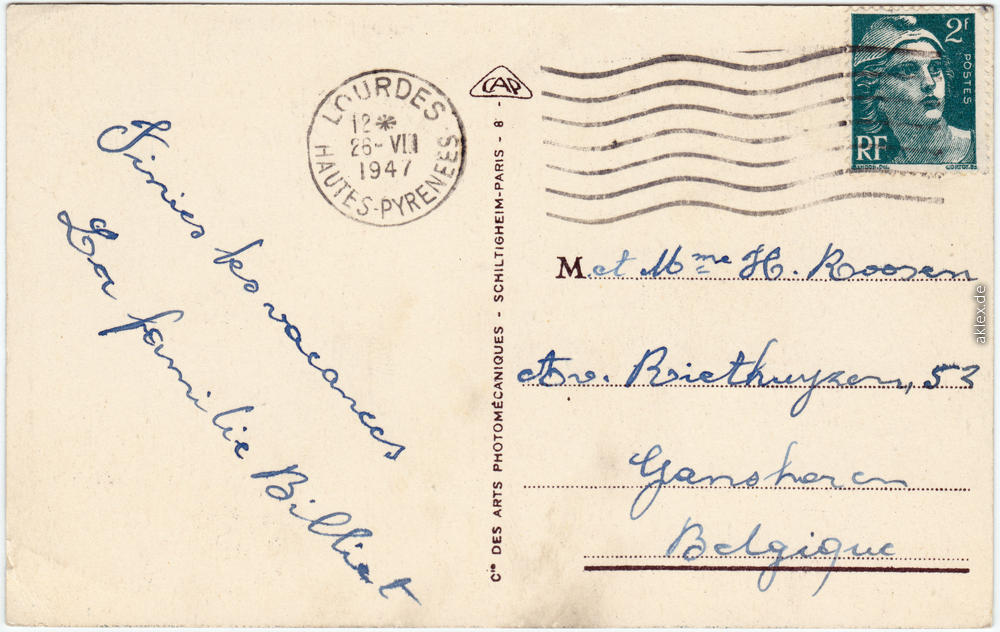 Finies les vacances
La famille Billiet
LOURDES
12*
26-VII
1947
HAUTES-PYRENEES
CAP
Cie DES ARTS PHOTOMÉCANIQUES - SCHILTIGHEIM-PARIS - 8 -
2F
POSTES
RF
GANDON-DEL.
M. et Mme H. Roosen
Av. Riethuyzen, 53
Ganshoren
Belgique
aklex.de